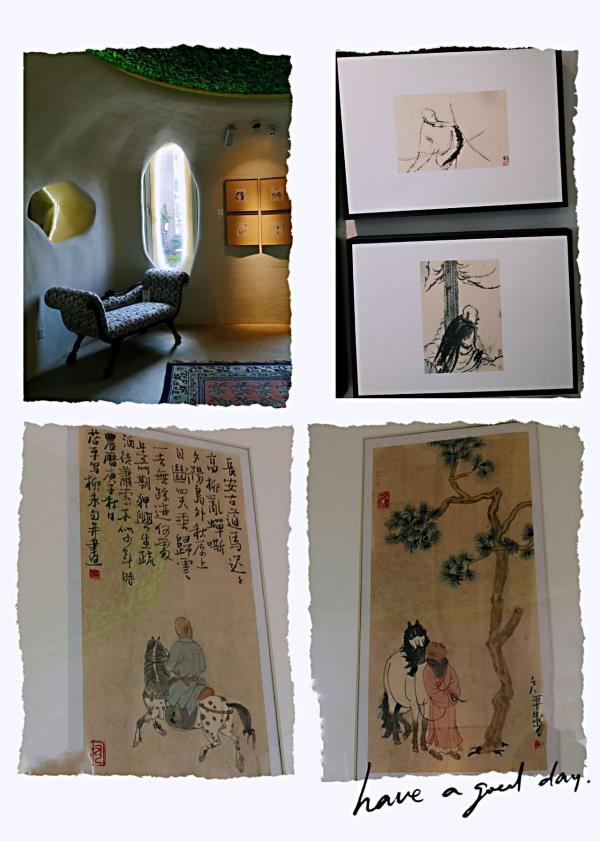 長安古道馬迟々
高柳亂蟬嘶
夕陽鳥外秋原上
目斷四天垂歸雲
一去無蹤迹何處
是前期狎興生疏
酒徒蕭索不似少年時
農曆子秋日
平寫柳永句并
have a good day.